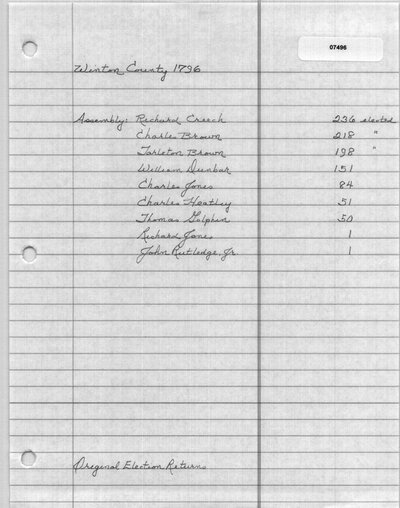 07496
Winton County 1796
Assembly: Richard Creech 236 elected
Charles Brown 218 "
Tarleton Brown 198 "
William Dunbar 151
Charles Jones 84
Charles Heatley 51
Thomas Golphin 50
Richard Jones 1
John Rutledge, Jr. 1
Original Election Returns